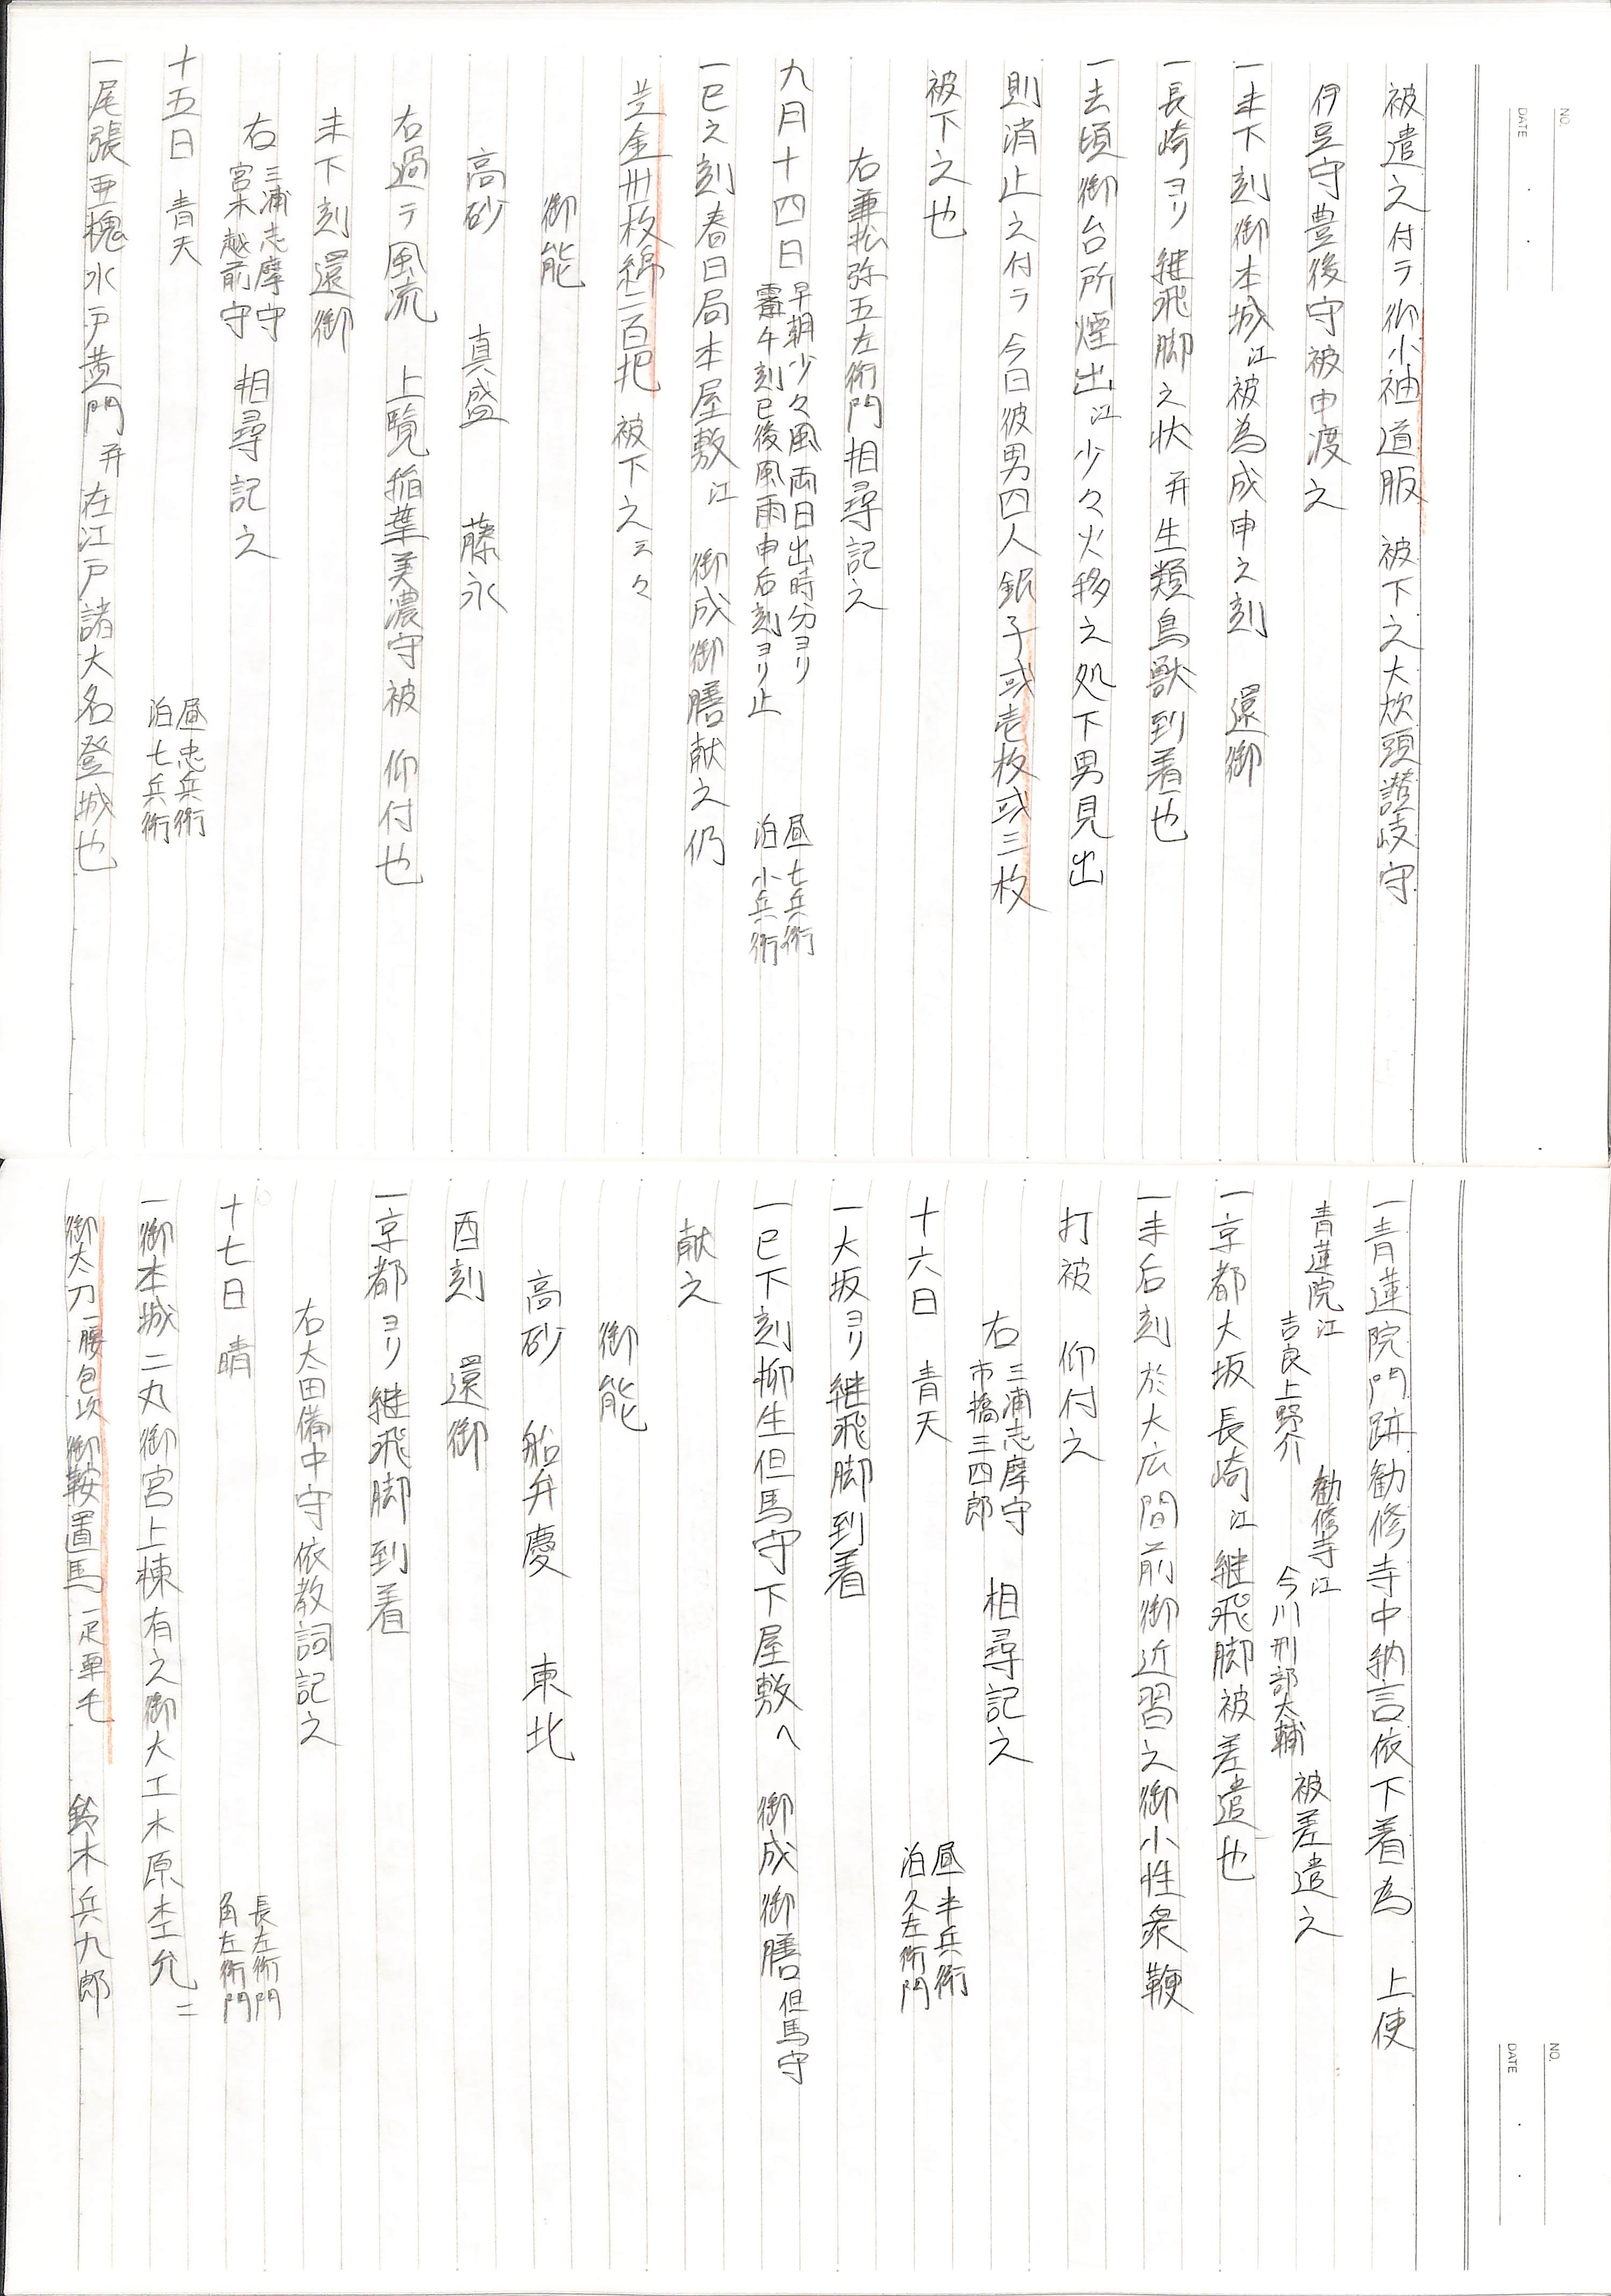 NO.
DATE
被遣之付テ御小袖道服 被下之大炊頭讃岐守
伊豆守豊後守被申渡之
一未下刻御本城江被為成申之刻 還御
一長崎ヨリ継飛脚之状并生類鳥獣到着也
一去頃御台所煙出江少々火移之処下男見出
則消止之付テ今日彼男四人銀子或壱枚或三枚
被下之也
右兼松弥五左衛門相尋記之
九月十四日 早朝少々風雨日出時分ヨリ
霽午刻已後風雨申后刻ヨリ止
昼七兵衛
泊小兵衛
一巳之刻春日局本屋敷江 御成御膳献之仍
芝金卅枚綿二百把 被下之云々
御能
高砂 真盛 藤永
右過テ風流 上覧稲葉美濃守被 仰付也
未下刻還御
右 三浦志摩守
宮木越前守 相尋記之
十五日 青天
昼忠兵衛
泊七兵衛
一尾張亜槐水戸黄門并在江戸諸大名登城也
NO.
DATE
一青蓮院門跡勧修寺中納言依下着為 上使
青蓮院江
吉良上野介
勧修寺江
今川刑部大輔
被差遣之
一京都大坂長崎江継飛脚被差遣也
一未后刻於大広間前御近習之御小性衆鞭
打被 仰付之
右 三浦志摩守
市橋三四郎 相尋記之
十六日 青天
昼半兵衛
泊久左衛門
一大坂ヨリ継飛脚到着
一巳下刻柳生但馬守下屋敷へ 御成御膳但馬守
献之
御能
高砂 船弁慶 東北
酉刻 還御
一京都ヨリ継飛脚到着
右太田備中守依教詞記之
十七日 晴
長左衛門
角左衛門
一御本城二丸御宮上棟有之御大工木原杢允二
御太刀一腰包次御鞍置馬一疋栗毛 鈴木兵九郎